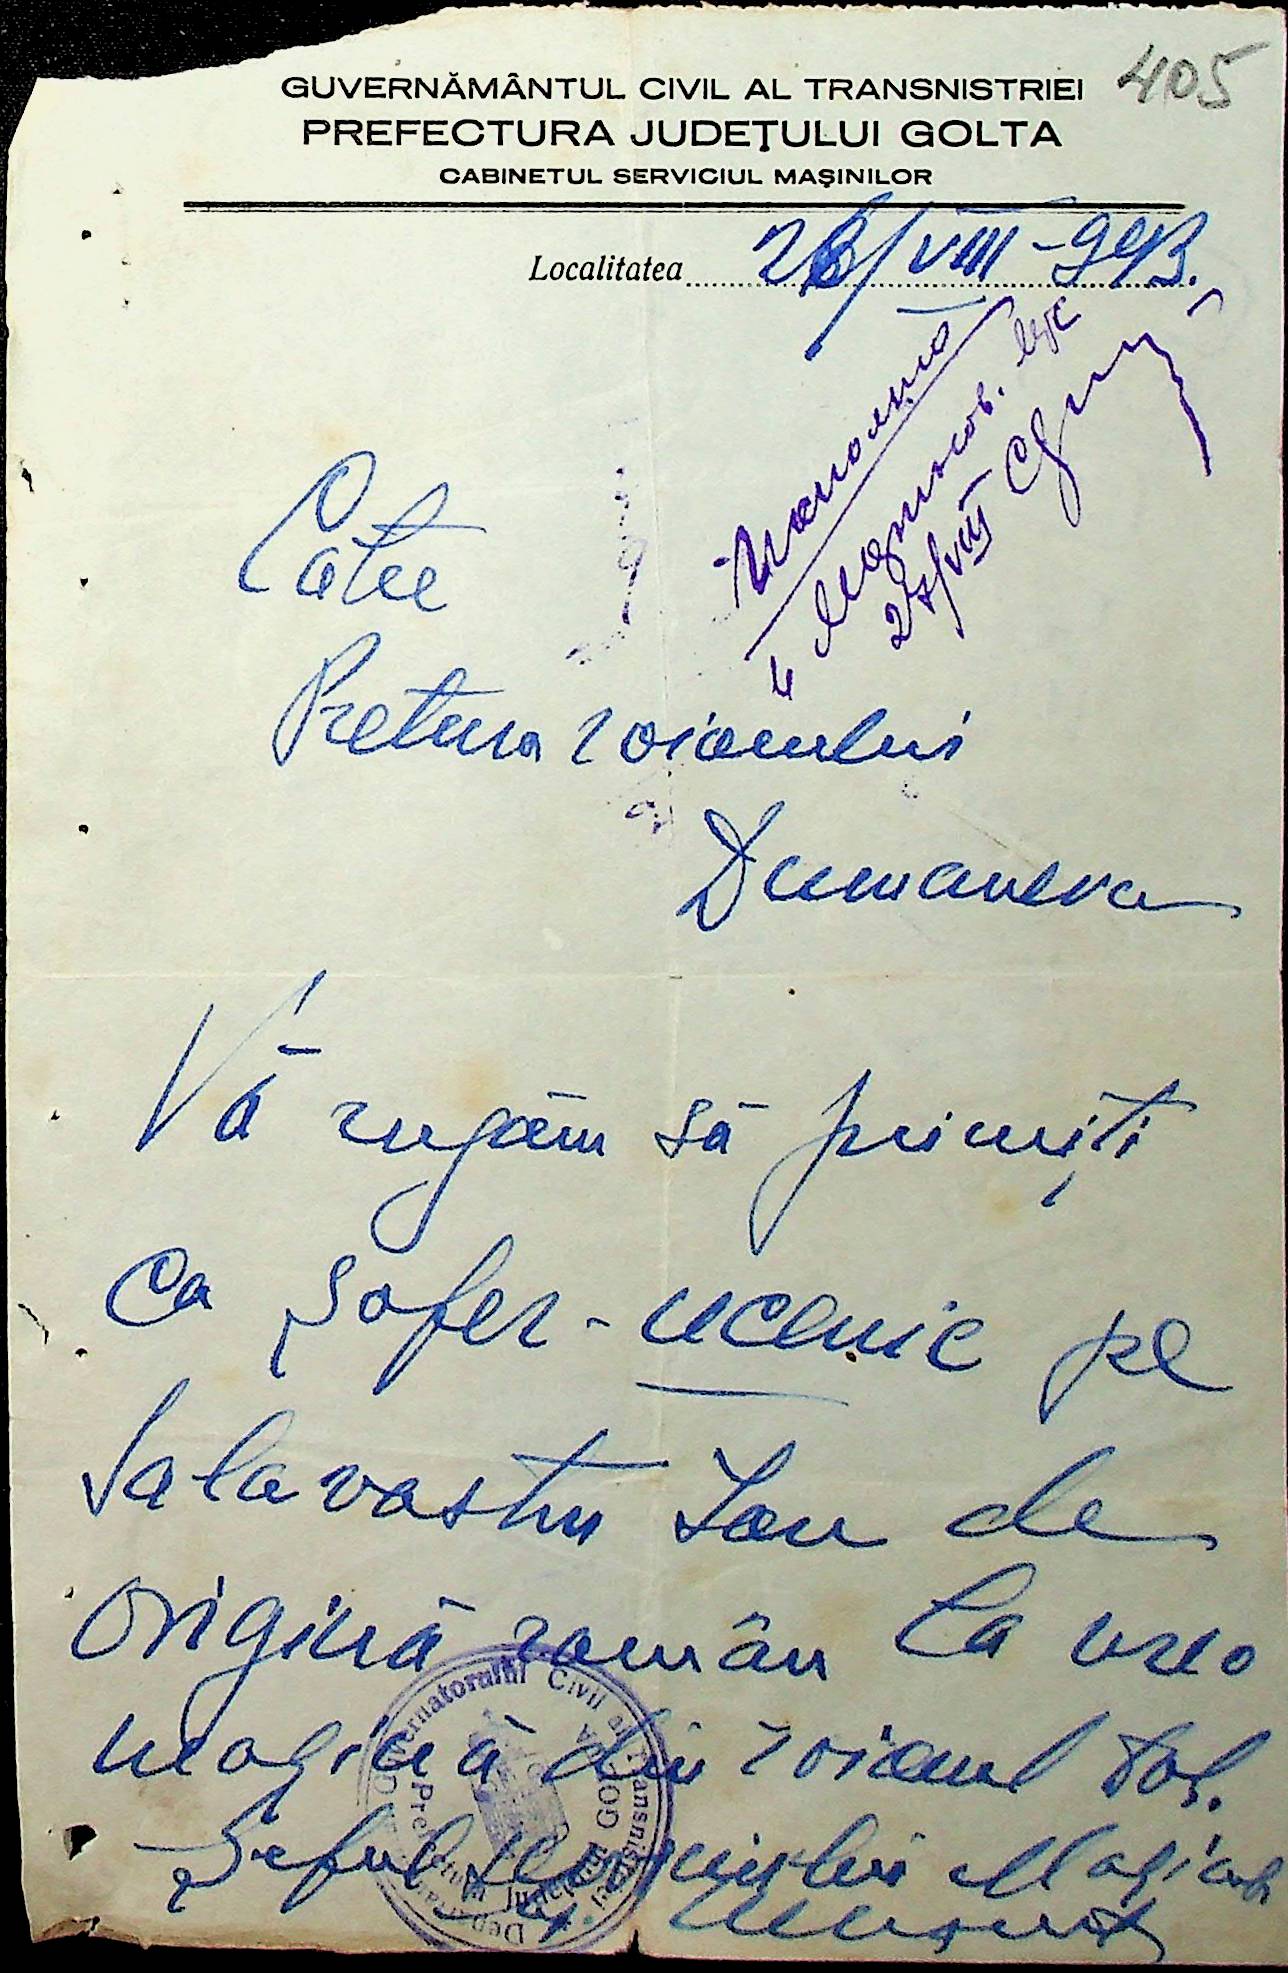 405
GUVERNĂMÂNTUL CIVIL AL TRANSNISTRIEI
PREFECTURA JUDEŢULUI GOLTA
CABINETUL SERVICIUL MAŞINILOR
Localitatea 26/VIII-943.
27/VIII
Catre
Pretura raionului
Dumaneva
Vă rugăm să primiți
ca șofer-ucenic pe
Salavastru Ion de
origină român la vreo
mașină din raionul Dvs.
Șeful Serviciului Mașinilor
Guvernatorului Civil al Transnistriei
Prefectura Județului GOLTA